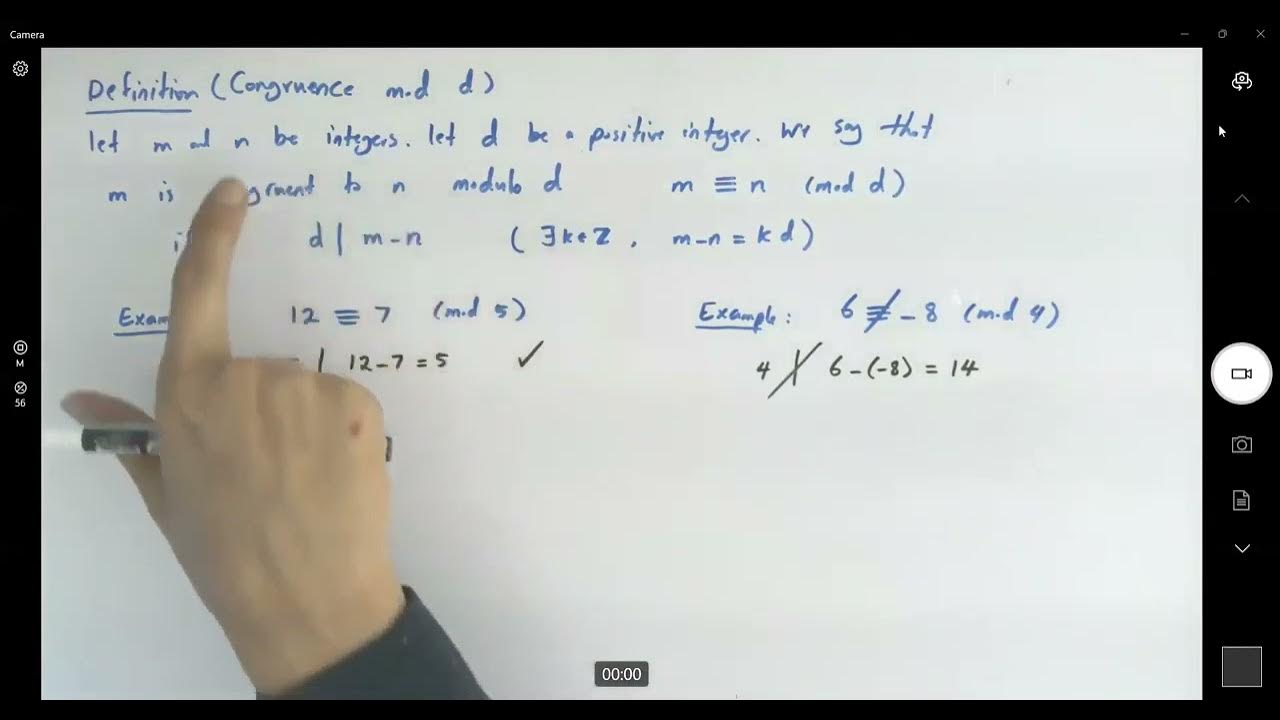 Camera
Definition (Congruence mod d)
let m and n be integers. let d be a positive integer. We say that
m is to n modulo d m ≡ n (mod d)
d | m-n (∃k∈Z, m-n = kd)
12 ≡ 7 (mod 5) Example: 6 ≢ -8 (mod 4)
| 12-7 = 5 ✓ 4 ∤ 6-(-8) = 14
M
56
00:00